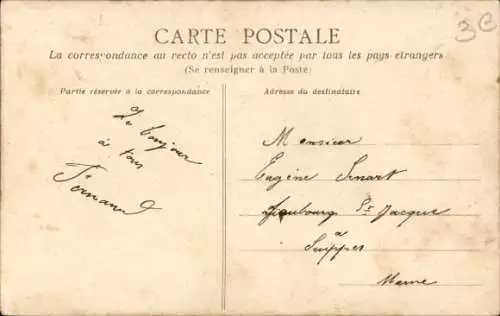 CARTE POSTALE
3€
La correspondance au recto n'est pas acceptée par tous les pays etrangers
(Se renseigner à la Poste)
Partie réservée à la correspondance
Adresse du destinataire
Le bonjour
à tous
Fernand
Monsieur
Eugène
faubourg St Jacque
à
Suippes
Marne